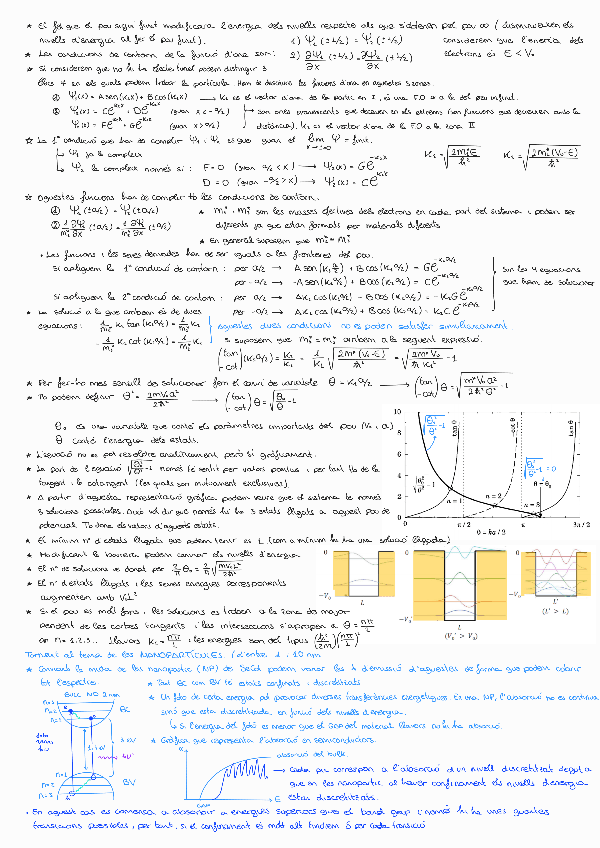 * El fet que el pou sigui finit modificarà l'energia dels nivells respecte als que s'obtenen pel pou ∞ (disminueixen els
nivells d'energia al fer el pou finit).
1) Ψ₁(±L/2) = Ψ₂(±L/2)
considerem que l'energia dels
* Les condicions de contorn de la funció d'ona són:
2) ∂Ψ₁/∂x (±L/2) = ∂Ψ₂/∂x (±L/2)
electrons és E < V₀
* Si considerem que no hi ha efecte túnel podem distingir 3
llocs en els quals podem trobar la partícula. Hem de descriure les funcions d'ona en aquestes 3 zones.
① Ψ₁(x) = A sen(K₁x) + B cos(K₁x) → K₁ és el vector d'ona de la partíc. en I, és una F.O = a la del pou infinit.
② Ψ₂(x) = C e^{K₂x} + D e^{-K₂x} (quan x < -a/2)
són ones evanescents que decauen en els extrems (són funcions que decreixen amb la
③ Ψ₂(x) = F e^{K₂x} + G e^{-K₂x} (quan x > a/2)
distància). K₂ és el vector d'ona de la F.O a la zona II
* La 1ª condició que han de complir Ψ₁ i Ψ₂ és que quan el lim Ψ = finit.
K₁ = √(2m₁*E/ħ²) K₂ = √(2m₂*(V₀-E)/ħ²)
↳ Ψ₁ ja la compleix
↳ Ψ₂ la compleix només si: F = 0 (quan a/2 < x) → Ψ₂(x) = G e^{-K₂x}
D = 0 (quan -a/2 > x) → Ψ₂(x) = C e^{K₂x}
* Aquestes funcions han de complir tb les condicions de contorn.
① Ψ₁(±a/2) = Ψ₂(±a/2) * m₁* i m₂* són les masses efectives dels electrons en cada part del sistema i poden ser
② 1/m₁* ∂Ψ₁/∂x (±a/2) = 1/m₂* ∂Ψ₂/∂x (±a/2) diferents ja que estan formats per materials diferents
* En general suposem que m₁* = m₂*
• Les funcions i les seves derivades han de ser iguals a les fronteres del pou.
Si apliquem la 1ª condició de contorn: per a/2 → A sen(K₁a/2) + B cos(K₁a/2) = G e^{-K₂a/2}
Són les 4 equacions
per -a/2 → -A sen(K₁a/2) + B cos(K₁a/2) = C e^{-K₂a/2}
que hem de solucionar
Si apliquem la 2ª condició de contorn: per a/2 →
per -a/2 →
* La solució a la que arribem és de dues
equacions: 1/m₁* K₁ tan(K₁a/2) = 1/m₂* K₂
aquestes dues condicions no es poden satisfer simultàniament
-1/m₁* K₁ cot(K₁a/2) = 1/m₂* K₂
Si suposem que m₁* = m₂* arribem a la següent expressió:
(tan / -cot)(K₁a/2) = K₂/K₁ = 1/K₁ √(2m*(V₀-E)/ħ²) = √(2m*V₀/ħ²K₁² - 1)
* Per fer-ho més senzill de solucionar fem el canvi de variable θ = K₁a/2 → (tan / -cot) θ = √(m*V₀a²/2ħ²θ² - 1)
* Tb podem definir θ₀² = mV₀a²/2ħ² → (tan / -cot) θ = √(θ₀²/θ² - 1)
θ₀ és una variable que conté els paràmetres importants del pou (V₀ i a)
θ conté l'energia dels estats.
* L'equació no es pot resoldre analíticament però sí gràficament.
* La part de l'equació √(θ₀²/θ² - 1) només té sentit per valors positius i per tant tb de la
tangent i la cotangent (les quals són mútuament exclusives).
* A partir d'aquesta representació gràfica podem veure que el sistema té només
3 solucions possibles. Això vol dir que només hi ha 3 estats lligats a aquest pou de
potencial. Tb dóna els valors d'aquests estats.
* El mínim nº d'estats lligats que podem tenir és 1 (com a mínim hi ha una solució lligada)
* Modificant la barrera podem canviar els nivells d'energia
* El nº de solucions ve donat per 2/π θ₀ = 2/π √(mV₀L²/2ħ²)
* El nº d'estats lligats i les seves energies corresponents
augmenten amb V₀L²
* Si el pou és molt fons, les solucions es troben a la zona de major
pendent de les corbes tangents i les interseccions s'apropen a θ = nπ/2
on n = 1,2,3... llavors K₁ = nπ/L i les energies són del tipus (ħ²/2m)(nπ/L)²
10
8
6
4
2
0
0
π/2
π
3π/2
θ = ka/2
tan θ
-cot θ
tan θ
√(θ₀²/θ² - 1)
√(θ₀²/θ² - 1) = 0
n = 1
n = 2
n = 3
θ = θ₀
0
-V₀
L
0
-V₀'
L
(V₀' > V₀)
0
-V₀
L'
(L' > L)
Tornant al tema de les NANOPARTÍCULES (d'entre 1 i 10 nm
* Canviant la mida de les nanopartíc (NP) de SeCd podem variar les λ d'emissió d'aquestes de forma que podem cobrir
tot l'espectre.
* Tant BC com BV té estats confinats i discretitzats
BULK NO 2 nm
* Un fotó de certa energia pot provocar diverses transferències energètiques. En una NP, l'absorció no és contínua
sinó que està discretitzada en funció dels nivells d'energia.
↳ Si l'energia del fotó és menor que el GAP del material llavors no hi ha absorció.
* Gràfica que representa l'absorció en semiconductors.
absorció del bulk.
→ cada pic correspon a l'absorció d'un nivell discretitzat degut a
que en les nanopartíc. al haver confinament els nivells d'energia
estan discretitzats.
n=3
n=2
n=1
BC
n=1
n=2
n=3
BV
E
• En aquest cas es comença a absorbir a energies superiors que el band gap i només hi ha unes quantes
transicions possibles, per tant, si el confinament és molt alt tindrem δ per cada transició